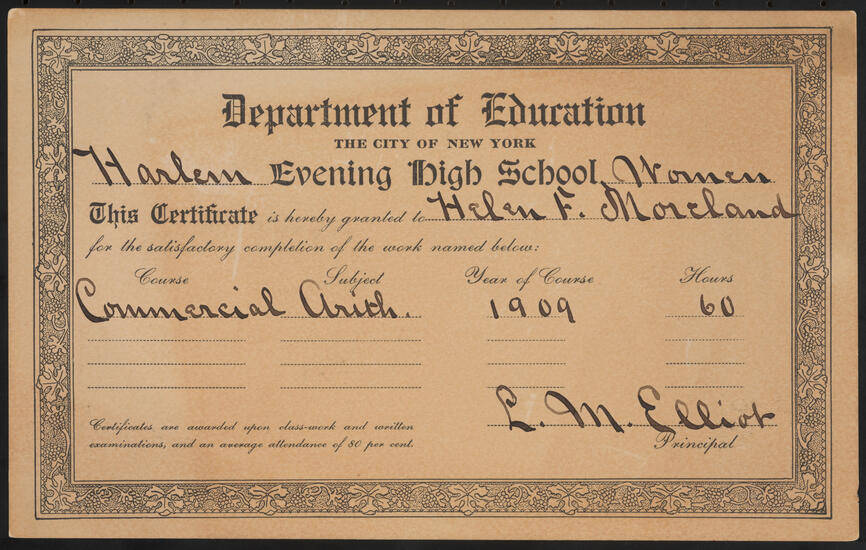 Department of Education
THE CITY OF NEW YORK
Harlem Evening High School, Women
This Certificate is hereby granted to Helen F. Moreland
for the satisfactory completion of the work named below:
Course Subject Year of Course Hours
Commercial Arith. 1909 60
L. M. Elliot
Principal
Certificates are awarded upon class-work and written
examinations, and an average attendance of 80 per cent.